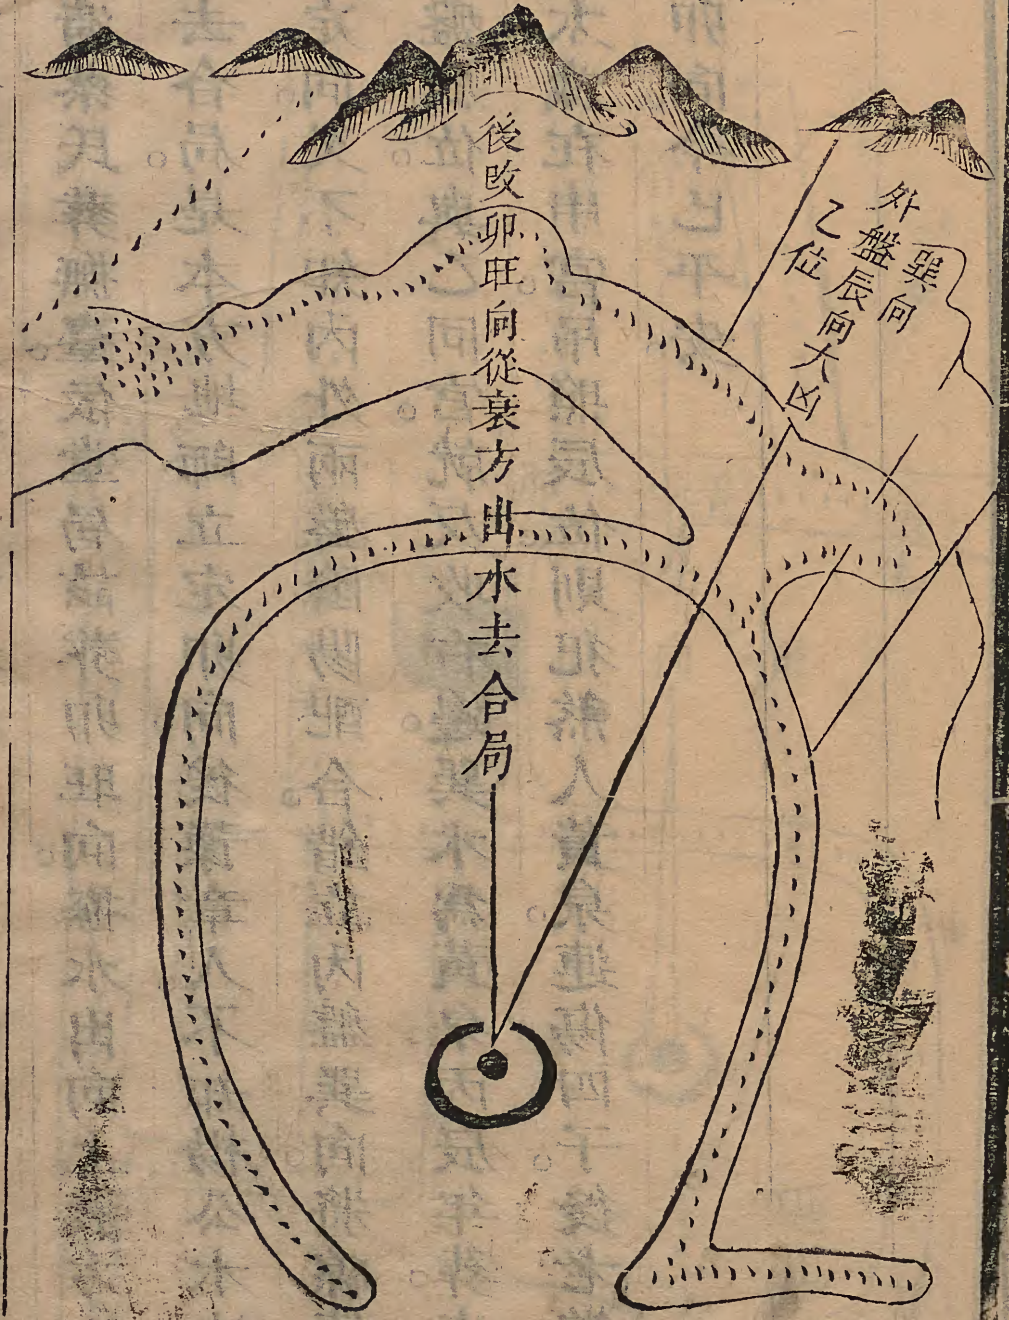 巽向
外盤辰向大凶
乙位
後改卯旺向從衰方出水去合局